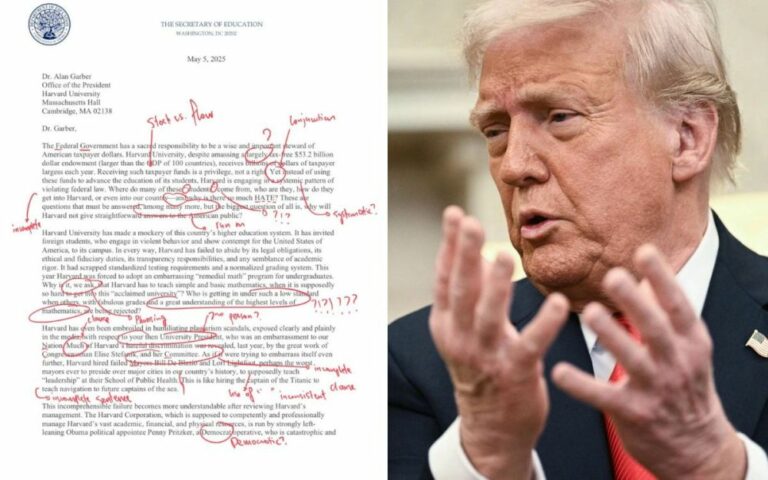 THE SECRETARY OF EDUCATION
WASHINGTON, DC 20202
May 5, 2025
Dr. Alan Garber
Office of the President
Harvard University
Massachusetts Hall
Cambridge, MA 02138
Stock vs. flow
Conjunction
Dr. Garber,
?
The Federal Government has a sacred responsibility to be a wise and important steward of
American taxpayer dollars. Harvard University, despite amassing a largely tax-free $53.2 billion
dollar endowment (larger than the GDP of 100 countries), receives billions of dollars of taxpayer
largess each year. Receiving such taxpayer funds is a privilege, not a right. Yet instead of using
these funds to advance the education of its students, Harvard is engaging in a systemic pattern of
violating federal law. Where do many of these students come from, who are they, how do they
get into Harvard, or even into our country—and why is there so much HATE? These are
questions that must be answered, among many more, but the biggest question of all is, why will
Harvard not give straightforward answers to the American public?
systematic?
incomplete
run on
?!?
Harvard University has made a mockery of this country's higher education system. It has invited
foreign students, who engage in violent behavior and show contempt for the United States of
America, to its campus. In every way, Harvard has failed to abide by its legal obligations, its
ethical and fiduciary duties, its transparency responsibilities, and any semblance of academic
rigor. It had scrapped standardized testing requirements and a normalized grading system. This
year Harvard was forced to adopt an embarrassing "remedial math" program for undergraduates.
Why is it, we ask, that Harvard has to teach simple and basic mathematics, when it is supposedly
so hard to get into this "acclaimed university"? Who is getting in under such a low standard
when others, with fabulous grades and a great understanding of the highest levels of
mathematics, are being rejected?
clause
Phrasing
no person?
Harvard has even been embroiled in humiliating plagiarism scandals, exposed clearly and plainly
in the media, with respect to your then University President, who was an embarrassment to our
Nation. Much of Harvard's hateful discrimination was revealed, last year, by the great work of
Congresswoman Elise Stefanik, and her Committee. As if it were trying to embarrass itself even
further, Harvard hired failed Mayors Bill De Blasio and Lori Lightfoot, perhaps the worst
mayors ever to preside over major cities in our country's history, to supposedly teach
"leadership" at their School of Public Health. This is like hiring the captain of the Titanic to
teach navigation to future captains of the sea.
incomplete
clause
incomplete sentence
use of " "
inconsistent
This incomprehensible failure becomes more understandable after reviewing Harvard's
management. The Harvard Corporation, which is supposed to competently and professionally
manage Harvard's vast academic, financial, and physical resources, is run by strongly left-
leaning Obama political appointee Penny Pritzker, a Democrat operative, who is catastrophic and
Democratic?